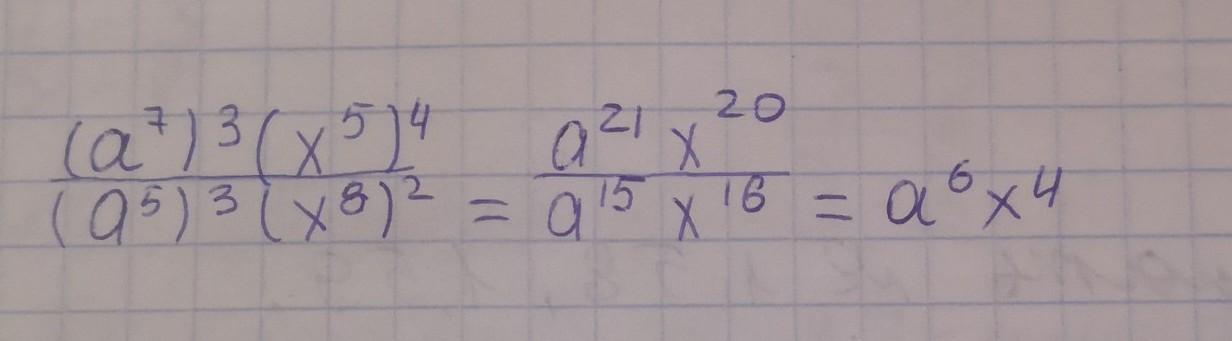 (a⁷)³(x⁵)⁴ / (a⁵)³(x⁸)² = a²¹x²⁰ / a¹⁵x¹⁶ = a⁶x⁴